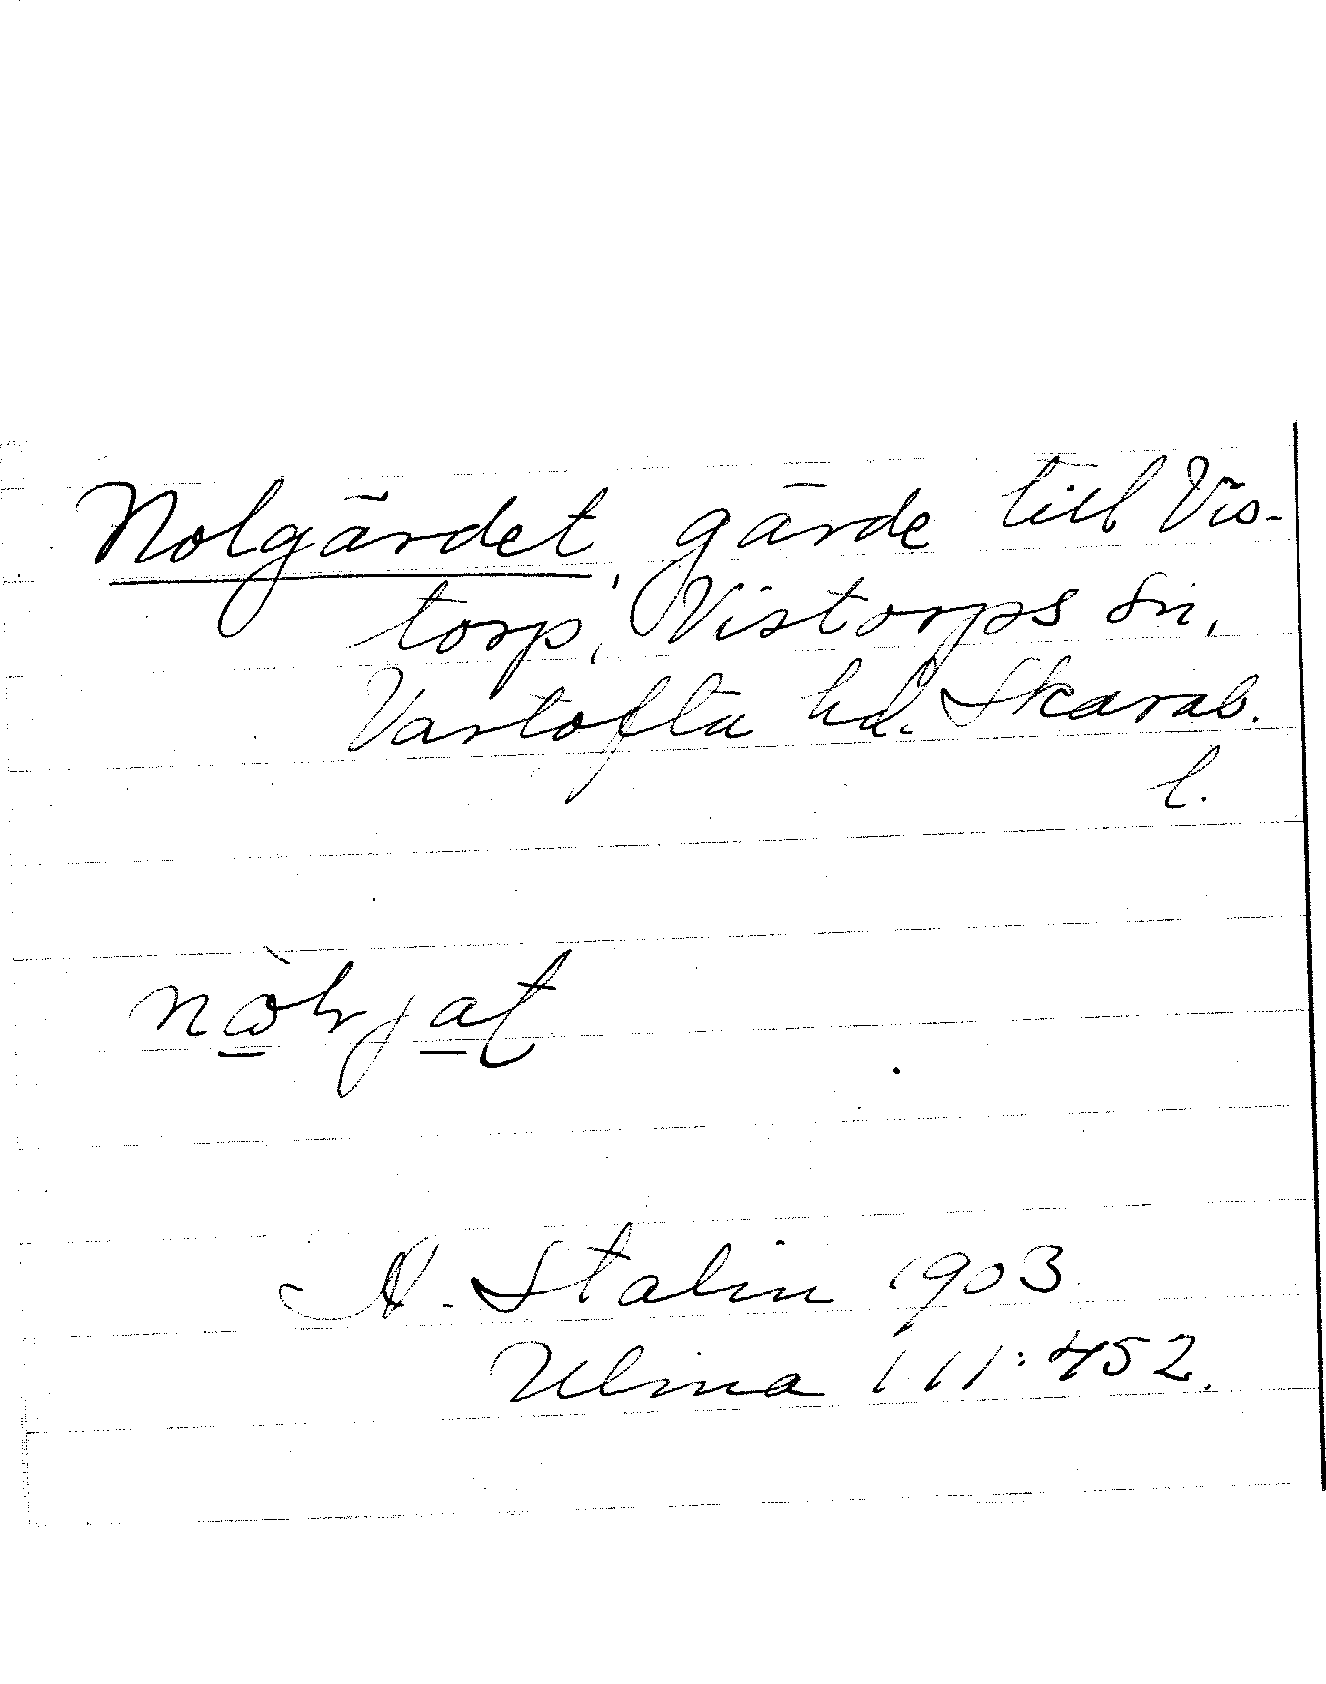 Nolgärdet, gärde till Vis-
torp, Vistorps sn,
Vartofta hd. Skarab.
l.
A. Stalin 1903
Ulma 111:452.